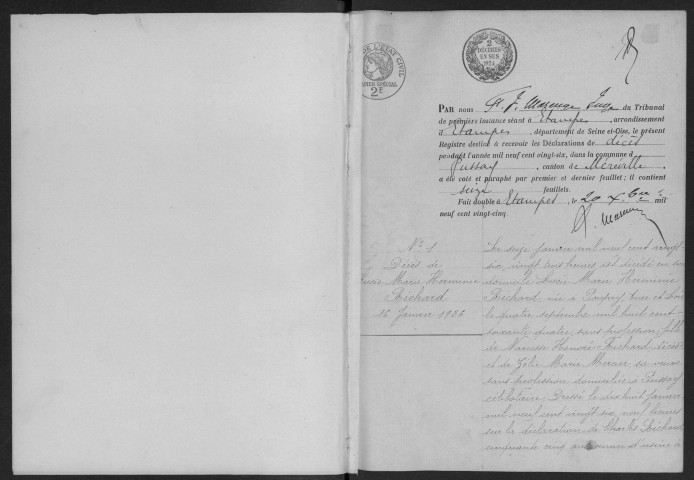 DE L'ETAT CIVIL
PAPIER SPÉCIAL
2F
2
DÉCIMES
EN SUS
1924
PAR nous Juge du Tribunal
de première instance séant à Etampes, arrondissement
d'Etampes, département de Seine-et-Oise, le présent
Registre destiné à recevoir les Déclarations de décès
pendant l'année mil neuf cent vingt-six, dans la commune d
Pussay, canton de Méréville
a été coté et paraphé par premier et dernier feuillet; il contient
seize feuillets.
Fait double à Etampes, le 20 Xbre mil
neuf cent vingt-cinq.
N° 1
Décès de
Lucie Marie Hermine
Bichard
16 Janvier 1926
Le seize janvier mil neuf cent vingt
six, vingt trois heures est décédé en son
domicile Lucie Marie Hermine
Bichard, née à
le quatre septembre mil huit cent
soixante quatre, sans profession, fille
de Narcisse Honoré Bichard, décédé
et de Zélie Marie Mercier sa veuve
sans profession domiciliée à Pussay
célibataire. Dressé le dix huit janvier
mil neuf cent vingt six, neuf heures
sur la déclaration de Charles Bichard
cinquante cinq ans